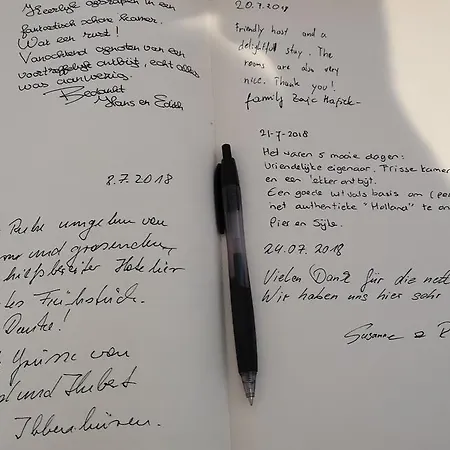 Heerlijk geslapen in een
fantastisch schone kamer.
Wat een rust!
Vanochtend genoten van een
voortreffelijk ontbijt, echt alles
was aanwezig.
Bedankt
Hans en Edith
8.7.2018
Ruhe umgeben von
und grasenden
hilfsbereiter Hotelier
Frühstück.
Danke!
Grüsse von
und Hubert
Ibbenbüren.
20.7.2018
Friendly host and a
delightfull stay. The
rooms are also very
nice. Thank you!
family
21-7-2018
Het waren 5 mooie dagen:
Vriendelijke eigenaar. Frisse kamer
en een lekker ontbijt.
Een goede uitvals basis om
net authentieke "Holland" te
Pier en Sijke.
24.07.2018
Vielen Dank für die
Wir haben uns hier sehr
Susanne &